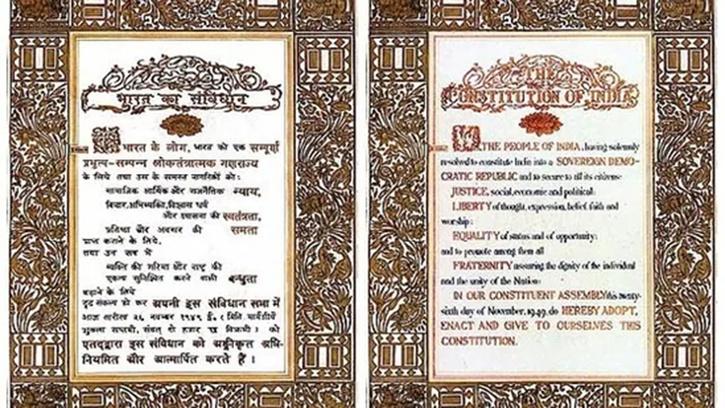 भारत का संविधान
भारत के लोग, भारत को एक सम्पूर्ण
प्रभुत्व-सम्पन्न लोकतंत्रात्मक गणराज्य
के लिये तथा उस के समस्त नागरिकों को:
सामाजिक आर्थिक और राजनैतिक न्याय,
विचार,अभिव्यक्ति,विश्वास धर्म
और उपासना की स्वतंत्रता,
प्रतिष्ठा और अवसर की समता
प्राप्त कराने के लिये,
तथा उन सब में
व्यक्ति की गरिमा और राष्ट्र की
एकता सुनिश्चित करने वाली बन्धुता
बढ़ाने के लिये
दृढ़ संकल्प हो कर अपनी इस संविधान सभा में
आज तारीख २६ नवम्बर १९४९ ई० (मिति मार्गशीर्ष
शुक्ला सप्तमी, संवत् दो हजार छः विक्रमी) को
एतद्द्वारा इस संविधान को अङ्गीकृत अधि-
नियमित और आत्मार्पित करते हैं।
THE
CONSTITUTION OF INDIA
THE PEOPLE OF INDIA, having solemnly
resolved to constitute India into a SOVEREIGN DEMO-
CRATIC REPUBLIC and to secure to all its citizens:
JUSTICE, social, economic and political;
LIBERTY of thought, expression, belief, faith and
worship;
EQUALITY of status and of opportunity;
and to promote among them all
FRATERNITY assuring the dignity of the individual
and the unity of the Nation;
IN OUR CONSTITUENT ASSEMBLY this twenty-
sixth day of November, 1949, do HEREBY ADOPT,
ENACT AND GIVE TO OURSELVES THIS
CONSTITUTION.